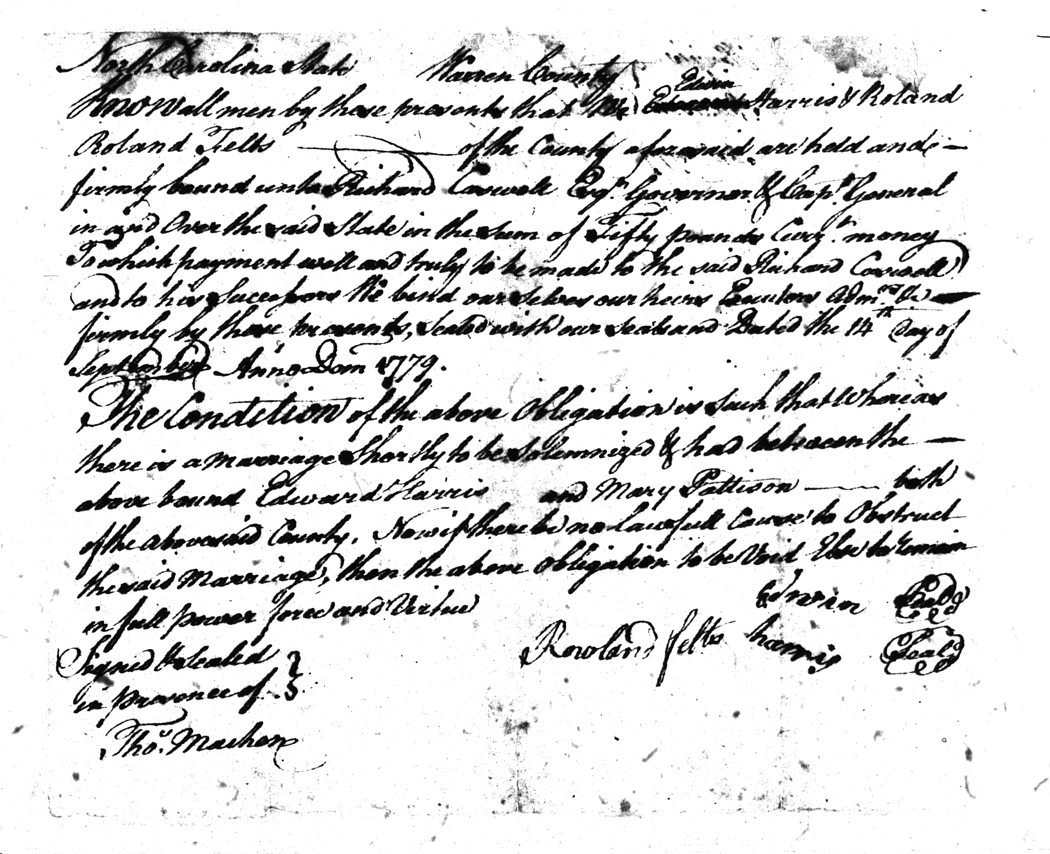 North Carolina State Warren County
Edwin
Know all men by these presents that We Edward Harris & Roland
Roland Felts of the County aforesaid are held and
firmly bound unto Richard Caswell Esqr. Governor & Capt. General
in and Over the said State in the sum of Fifty pounds Curry. money
To which payment well and truly to be made to the said Richard Caswell
and to his Successors We bind ourselves our heirs Executors Admrs. &c
firmly by these presents, sealed with our seals and Dated the 14th Day of
September Anno Dom 1779.
The Condition of the above Obligation is Such that Whereas
there is a Marriage Shortly to be Solemnized & had between the
above bound Edward Harris and Mary Pattison both
of the abovesaid County. Now if there be no lawfull Cause to Obstruct
the said Marriage, then the above Obligation to be Void Else to remain
in full power force and Virtue
Edwin Seal
Signed & Sealed Rowland felts harris Seal
in presence of
Thos. Machen